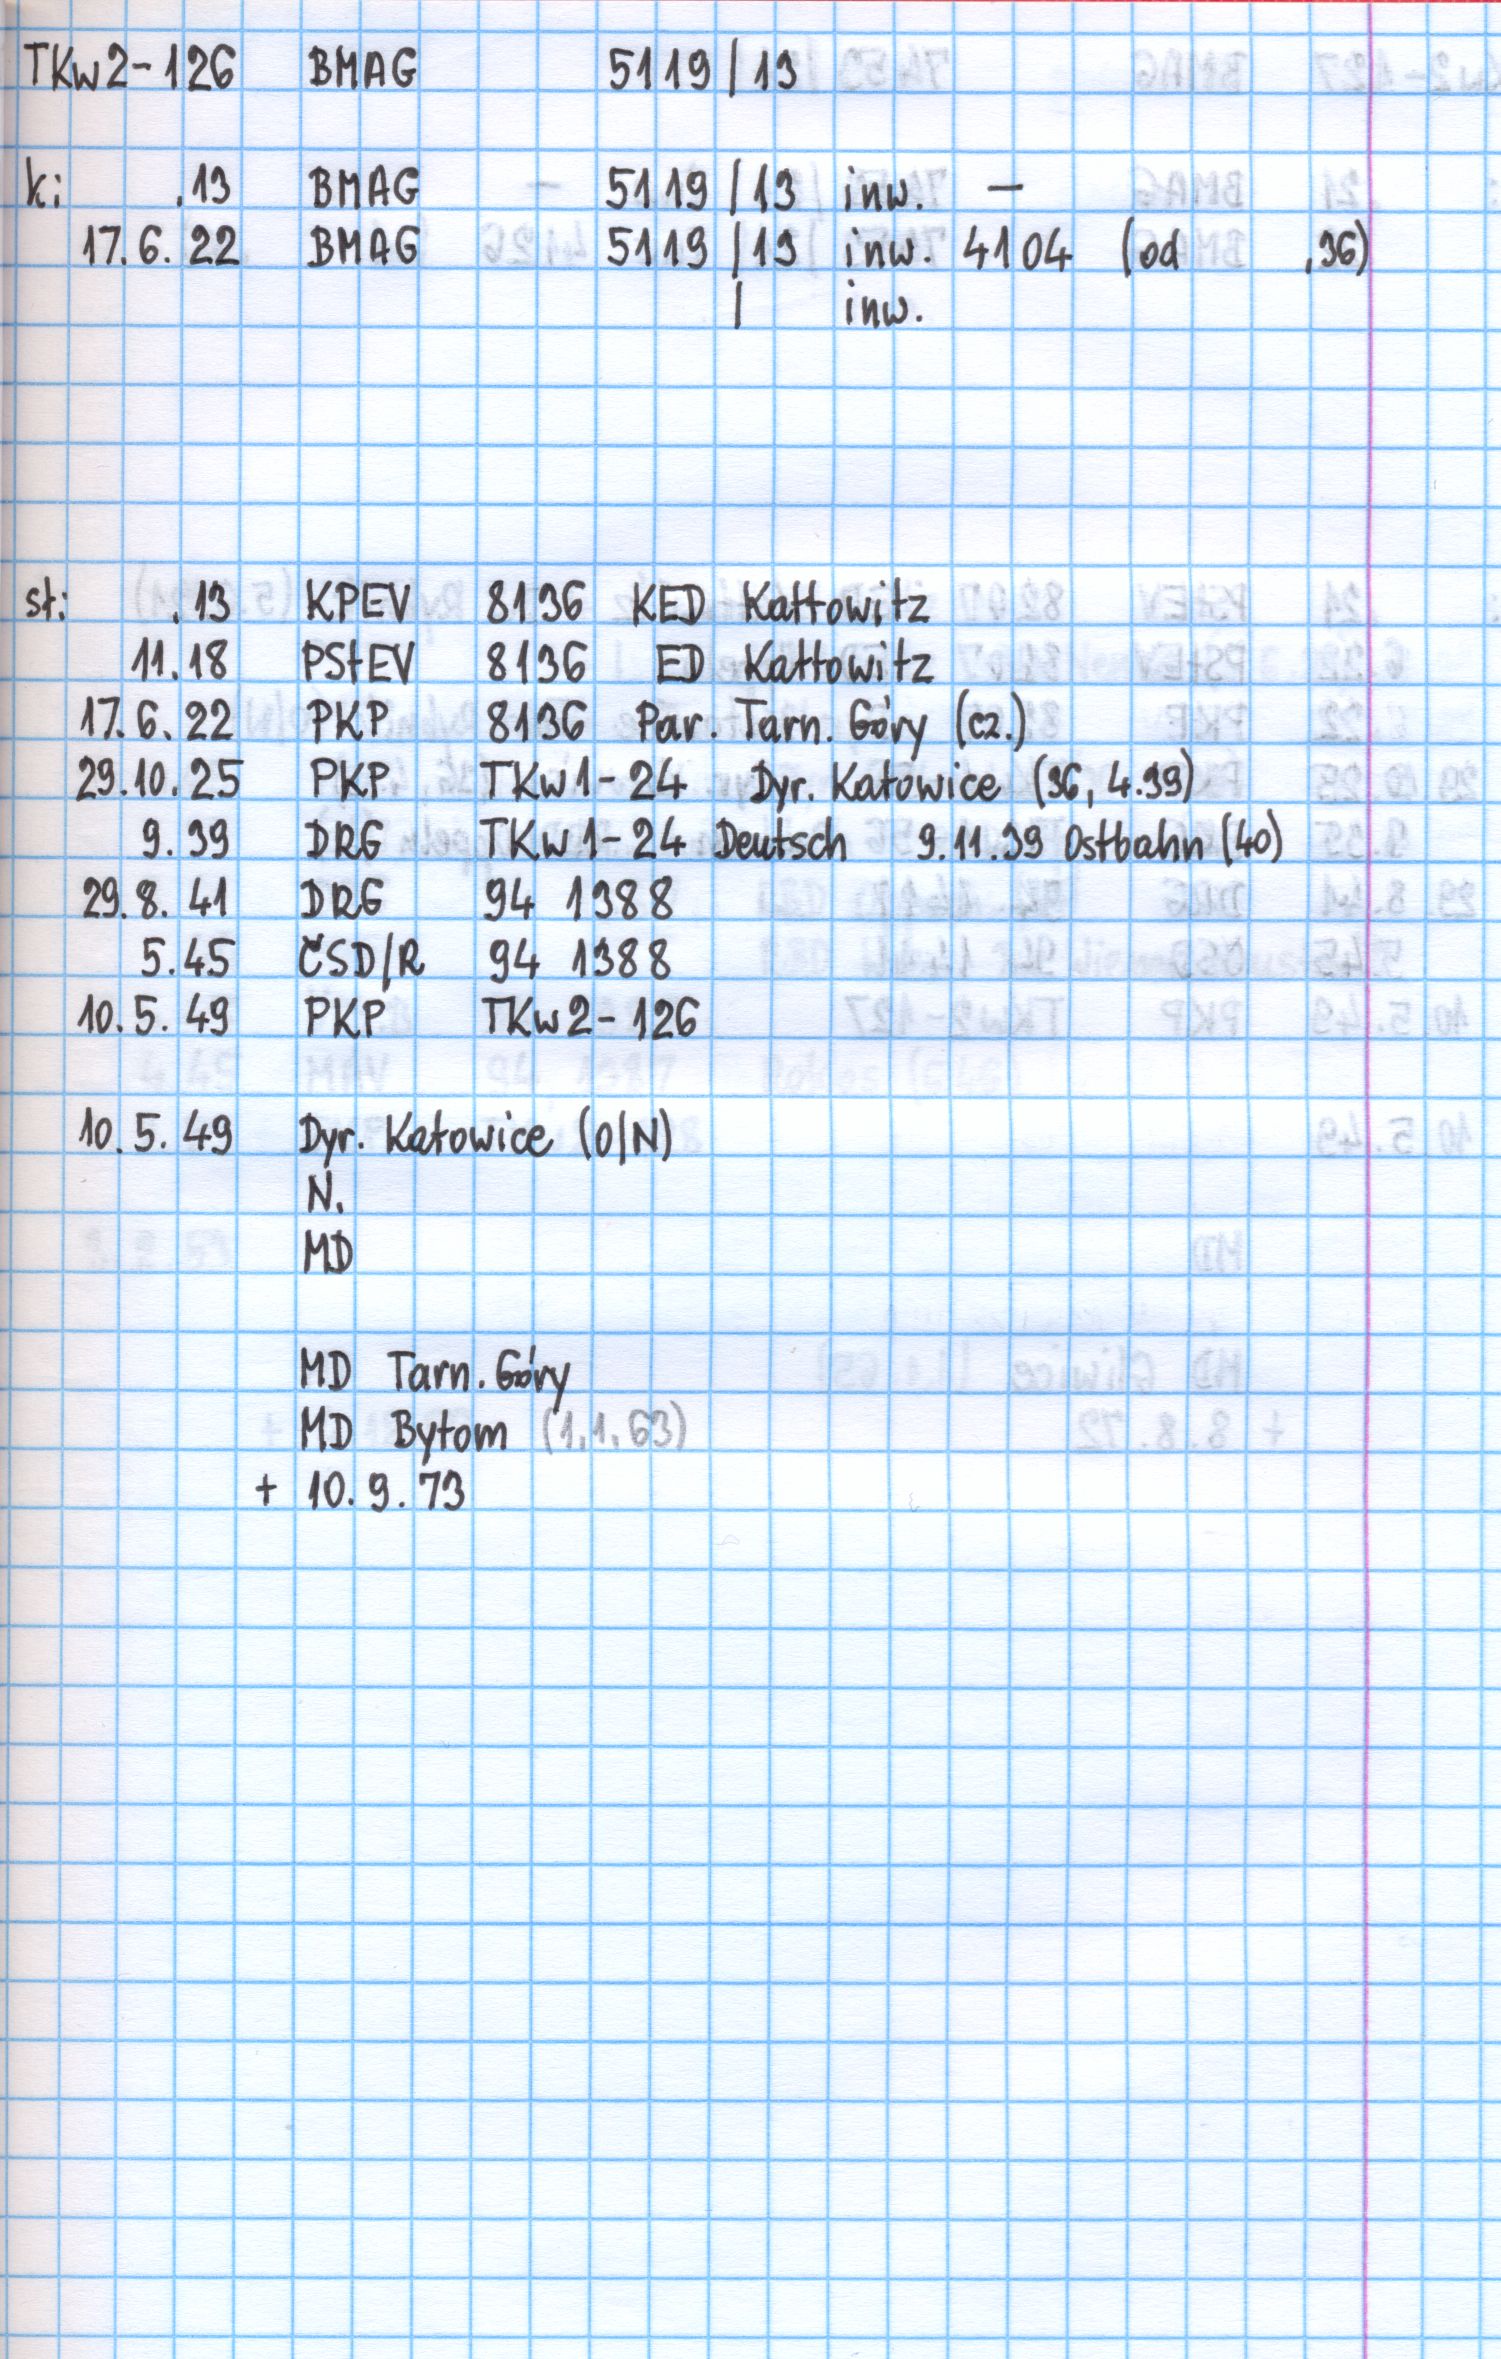 TKw2-126 BMAG 5119/13
k: .13 BMAG 5119/13 inw. –
17.6.22 BMAG 5119/13 inw. 4104 (od .36)
/ inw.
st: .13 KPEV 8136 KED Kattowitz
11.18 PStEV 8136 ED Kattowitz
17.6.22 PKP 8136 Par. Tarn. Góry (cz.)
29.10.25 PKP TKw1-24 Dyr. Katowice (36, 4.39)
9.39 DRG TKw1-24 Deutsch 9.11.39 Ostbahn (40)
29.8.41 DRG 94 1388
5.45 ČSD/R 94 1388
10.5.49 PKP TKw2-126
10.5.49 Dyr. Katowice (O/N)
N.
MD
MD Tarn. Góry
MD Bytom (1.1.63)
+ 10.9.73